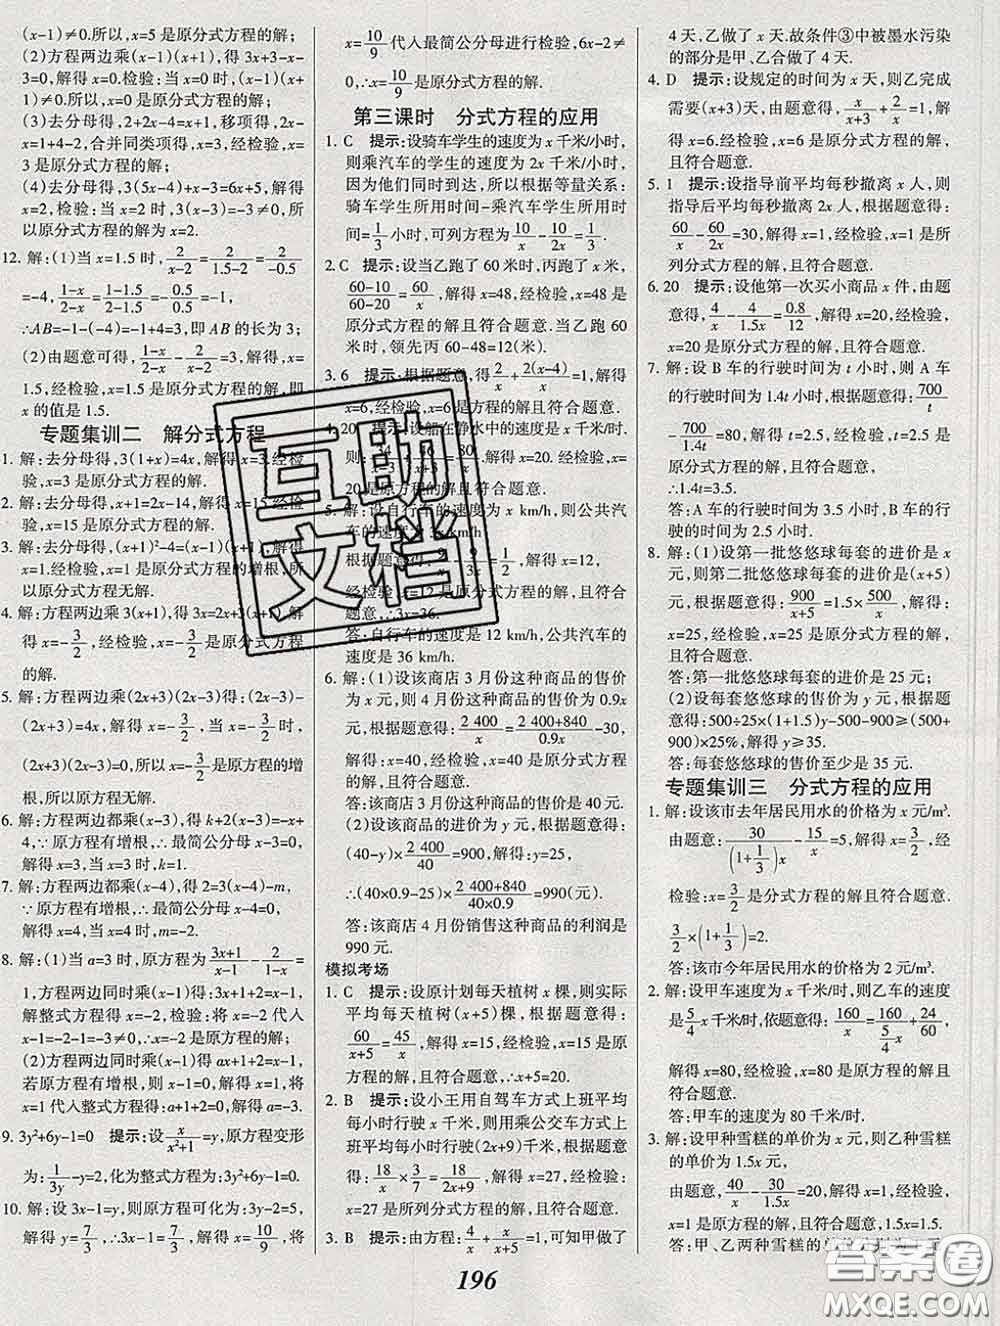 (x-1)≠0.所以,x=5是原分式方程的解;
(2)方程两边乘(x-1)(x+1),得3x+3-x-
3=0.解得x=0,检验:当x=0时,(x-1)(x+
1)≠0.所以,x=0是原分式方程的解;
(3)去分母得,2+2x-4=x+1,移项得,2x-
x=1+4-2,合并同类项得,x=3,经检验x=
3是原分式方程的解;
(4)去分母得,3(5x-4)+x-3=6x+5,解得
x=2,检验:当x=2时,3(x-3)=-3≠0,所
以原分式方程的解为x=2.
12.解:(1)当x=1.5时,x/(x-2)=1.5/(1.5-2)=2/(-0.5)
=-4,1/(2-x)=(1-1.5)/(2-1.5)=-0.5/0.5=-1,
∴AB=-1-(-4)=-1+4=3,即AB的长为3;
(2)由题意可得,(1-x)/(2-x)-2/(x-2)=3,解得x=
1.5,经检验,x=1.5是原分式方程的解,即
x的值是1.5.
专题集训二 解分式方程
1.解:去分母得,3(1+x)=4x,解得x=3,经检
验,x=3是原分式方程的解.
2.解:去分母得,x+1=2x-14,解得x=15,经检
验,x=15是原分式方程的解.
3.解:去分母得,(x+1)²-4=(x-1)(x+1),解得
x=1.经检验,x=1是原分式方程的增根,所
以原分式方程无解.
4.解:方程两边乘3(x+1),得3x=2x+3(x+1),解
得x=-3/2,经检验,x=-3/2是原分式方程
的解.
5.解:方程两边乘(2x+3)(2x-3)得:(2x-3)-
(2x+3)=4x,解得x=-3/2,当x=-3/2时,
(2x+3)(2x-3)=0,x=-3/2是原方程的增
根,所以原方程无解.
6.解:方程两边都乘(x-3),得k+2(x-3)=-x+
4,∵原方程有增根,∴最简公分母x-3=0,
解得x=3,当x=3时,k=1.
7.解:方程两边都乘(x-4),得2=3(x-4)-m,
∵原方程有增根,∴最简公分母x-4=0,
解得x=4,当x=4时,m=-2.
8.解:(1)当a=3时,原方程为(3x+1)/(x-1)-2/(1-x)=
1,方程两边同时乘(x-1)得3x+1+2=x-1,
解整式方程得x=-2,检验:将x=-2代入
x-1=-2-1=-3≠0,∴x=-2是原方程的解;
(2)方程两边同时乘(x-1)得ax+1+2=x-1,
若原方程有增根,则x-1=0,解得x=1,将x=
1代入整式方程得:a+1+2=0,解得:a=-3.
9. 3y²+6y-1=0 提示:设x/(x²+1)=y,原方程变形
为:1/(3y)-y=2,化为整式方程:3y²+6y-1=0.
10.解:设3x-1=y,则原方程可化为:3y-2=5,
解得y=7/3,∴3x-1=7/3,解得x=10/9,将
x=10/9代入最简公分母进行检验,6x-2≠
0,∴x=10/9是原分式方程的解.
第三课时 分式方程的应用
1. C 提示:设骑车学生的速度为x千米/小时,
则乘汽车的学生的速度为2x千米/小时,
因为他们同时到达,所以根据等量关系:
骑车学生所用时间-乘汽车学生所用时
间=1/3小时,可列方程为10/x-10/2x=1/3.
2. C 提示:设当乙跑了60米时,丙跑了x米,
(60-10)/(60-20)=60/x,解得x=48,经检验,x=48是
原分式方程的解且符合题意.当乙跑60
米时,领先丙60-48=12(米).
3. 6 提示:根据题意,得2/x+2(x-4)/x=1,解得
x=6,经检验,x=6是原方程的解且符合题意.
4. 20 提示:设船在静水中的速度是x千米/时.
则:34/(x-3)+46/(x+3)=80/x,解得x=20.经检验,x=
20是原方程的解且符合题意.
5.解:设自行车的速度为x km/h,则公共汽
车的速度为3x km/h
根据题意得:9/x-9/3x=1/2,解得x=12,
经检验,x=12是原方程的解且符合题
意,∴3x=36.
答:自行车的速度是12 km/h,公共汽车的
速度是36 km/h.
6.解:(1)设该商店3月份这种商品的售价
为x元,则4月份这种商品的售价为0.9x
元,根据题意得:2 400/x=(2 400+840)/0.9x-30,
解得:x=40,经检验,x=40是原分式方程
的解,且符合题意.
答:该商店3月份这种商品的售价是40元.
(2)设该商品的进价为y元,根据题意得:
(40-y)×2 400/40=900,解得:y=25,
∴(40×0.9-25)×(2 400+840)/(40×0.9)=990(元).
答:该商店4月份销售这种商品的利润是
990元.
模拟考场
1. C 提示:设原计划每天植树x棵,则实际
平均每天植树(x+5)棵,根据题意得:
60/(x+5)=45/x,解得:x=15,经检验,x=15是原
方程的解,且符合题意,∴x+5=20.
2. B 提示:设小王用自驾车方式上班平均
每小时行驶x千米,则乘公交车方式上
班平均每小时行驶(2x+9)千米,根据题意
得:18/x×3/7=18/(2x+9),解得:x=27,经检验:
x=27是所列分式方程的解且符合题意.
3. B 提示:由方程:4/x+x/(x+5)=1,可知甲做了
4天,乙做了x天.故条件③中被墨水污染
的部分是甲、乙合做了4天.
4. D 提示:设规定的时间为x天,则乙完成
需要(x+3)天,由题意得,x/(x+3)+2/x=1,解
得:x=6,经检验,x=6是原分式方程的解,
且符合题意.
5. 1 提示:设指导前平均每秒撤离x人,则
指导后平均每秒撤离2x人,根据题意得:
60/x-60/2x=30,解得x=1,经检验,x=1是所
列分式方程的解,且符合题意.
6. 20 提示:设他第一次买小商品x件,由题
意得,4/x-4/1.5x=0.8/12,解得:x=20,经检验,
x=20是原分式方程的解且符合题意.
7.解:设B车的行驶时间为t小时,则A车
的行驶时间为1.4t小时,则根据题意得700/t
-700/1.4t=80,解得t=2.5,经检验,t=2.5是
原分式方程的解且符合题意,
∴1.4t=3.5.
答:A车的行驶时间为3.5小时,B车的行
驶的时间为2.5小时.
8.解:(1)设第一批悠悠球每套的进价是x
元,则第二批悠悠球每套的进价是(x+5)
元,根据题意得:900/(x+5)=1.5×500/x,解得:
x=25,经检验,x=25是原分式方程的解,且
符合题意.
答:第一批悠悠球每套的进价是25元;
(2)设每套悠悠球的售价为y元,根据题
意得:500÷25×(1+1.5)y-500-900≥(500+
900)×25%,解得y≥35.
答:每套悠悠球的售价至少是35元.
专题集训三 分式方程的应用
1.解:设该市去年居民用水的价格为x元/m³.
由题意:30/(1+1/3)x-15/x=5,解得x=3/2,经
检验:x=3/2是分式方程的解且符合题意.
3/2×(1+1/3)=2.
答:该市今年居民用水的价格为2元/m³.
2.解:设甲车速度为x千米/时,则乙车的速度
是5/4x千米/时,依题意得:160/x=160/(5/4x)+24/60,
解得x=80,经检验,x=80是原分式方程的解
且符合题意.
答:甲车的速度为80千米/时.
3.解:设甲种雪糕的单价为x元,则乙种雪糕
的单价为1.5x元,
由题意得,40/x-30/1.5x=20,解得x=1,经检验,
x=1是原方程的解且符合题意,1.5x=1.5.
答:甲、乙两种雪糕的
196
互助
文档
答案圈
MXQE.COM